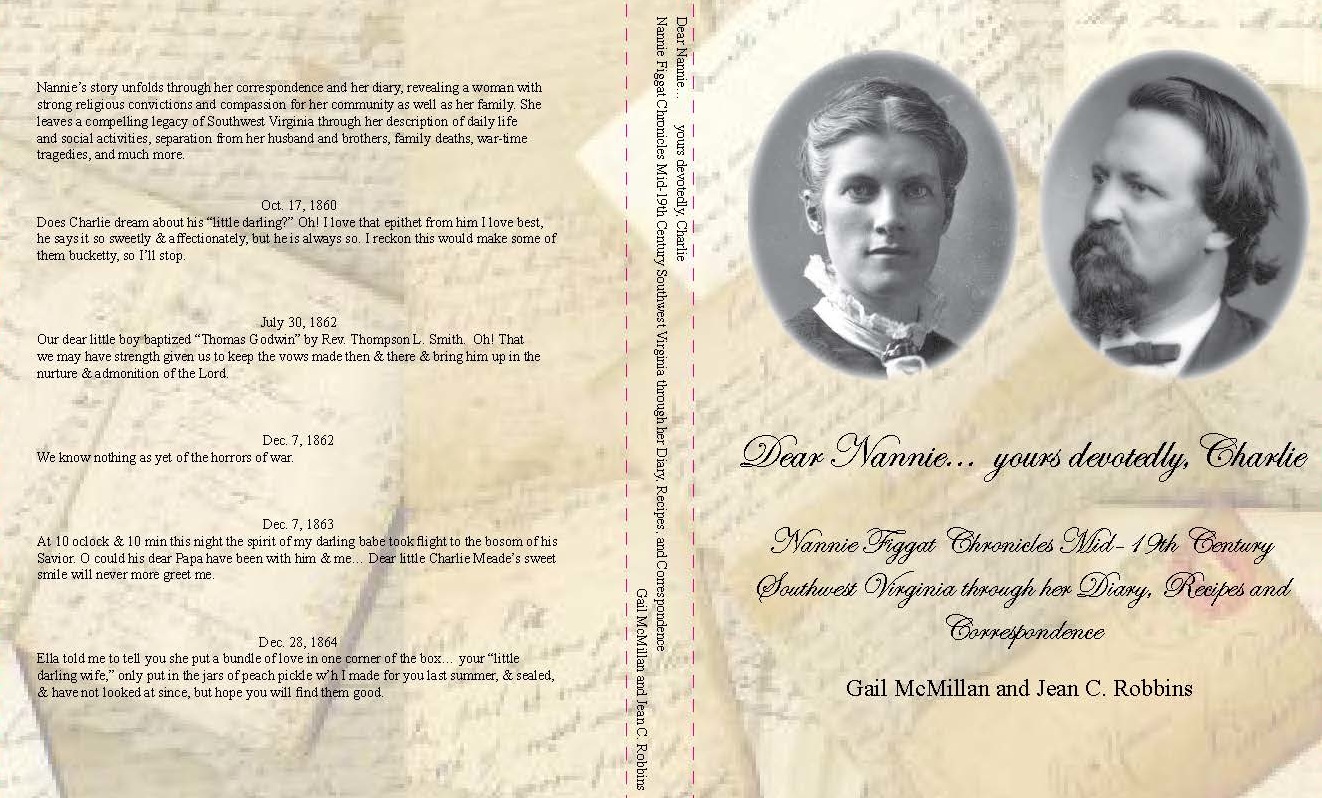 Nannie's story unfolds through her correspondence and her diary, revealing a woman with
strong religious convictions and compassion for her community as well as her family. She
leaves a compelling legacy of Southwest Virginia through her description of daily life
and social activities, separation from her husband and brothers, family deaths, war-time
tragedies, and much more.
Oct. 17, 1860
Does Charlie dream about his "little darling?" Oh! I love that epithet from him I love best,
he says it so sweetly & affectionately, but he is always so. I reckon this would make some of
them bucketty, so I'll stop.
July 30, 1862
Our dear little boy baptized "Thomas Godwin" by Rev. Thompson L. Smith. Oh! That
we may have strength given us to keep the vows made then & there & bring him up in the
nurture & admonition of the Lord.
Dec. 7, 1862
We know nothing as yet of the horrors of war.
Dec. 7, 1863
At 10 oclock & 10 min this night the spirit of my darling babe took flight to the bosom of his
Savior. O could his dear Papa have been with him & me... Dear little Charlie Meade's sweet
smile will never more greet me.
Dec. 28, 1864
Ella told me to tell you she put a bundle of love in one corner of the box... your "little
darling wife," only put in the jars of peach pickle w'h I made for you last summer, & sealed,
& have not looked at since, but hope you will find them good.
Dear Nannie... yours devotedly, Charlie
Nannie Figgat Chronicles Mid-19th Century Southwest Virginia through her Diary, Recipes, and Correspondence
Gail McMillan and Jean C. Robbins
Dear Nannie... yours devotedly, Charlie
Nannie Figgat Chronicles Mid-19th Century
Southwest Virginia through her Diary, Recipes and
Correspondence
Gail McMillan and Jean C. Robbins